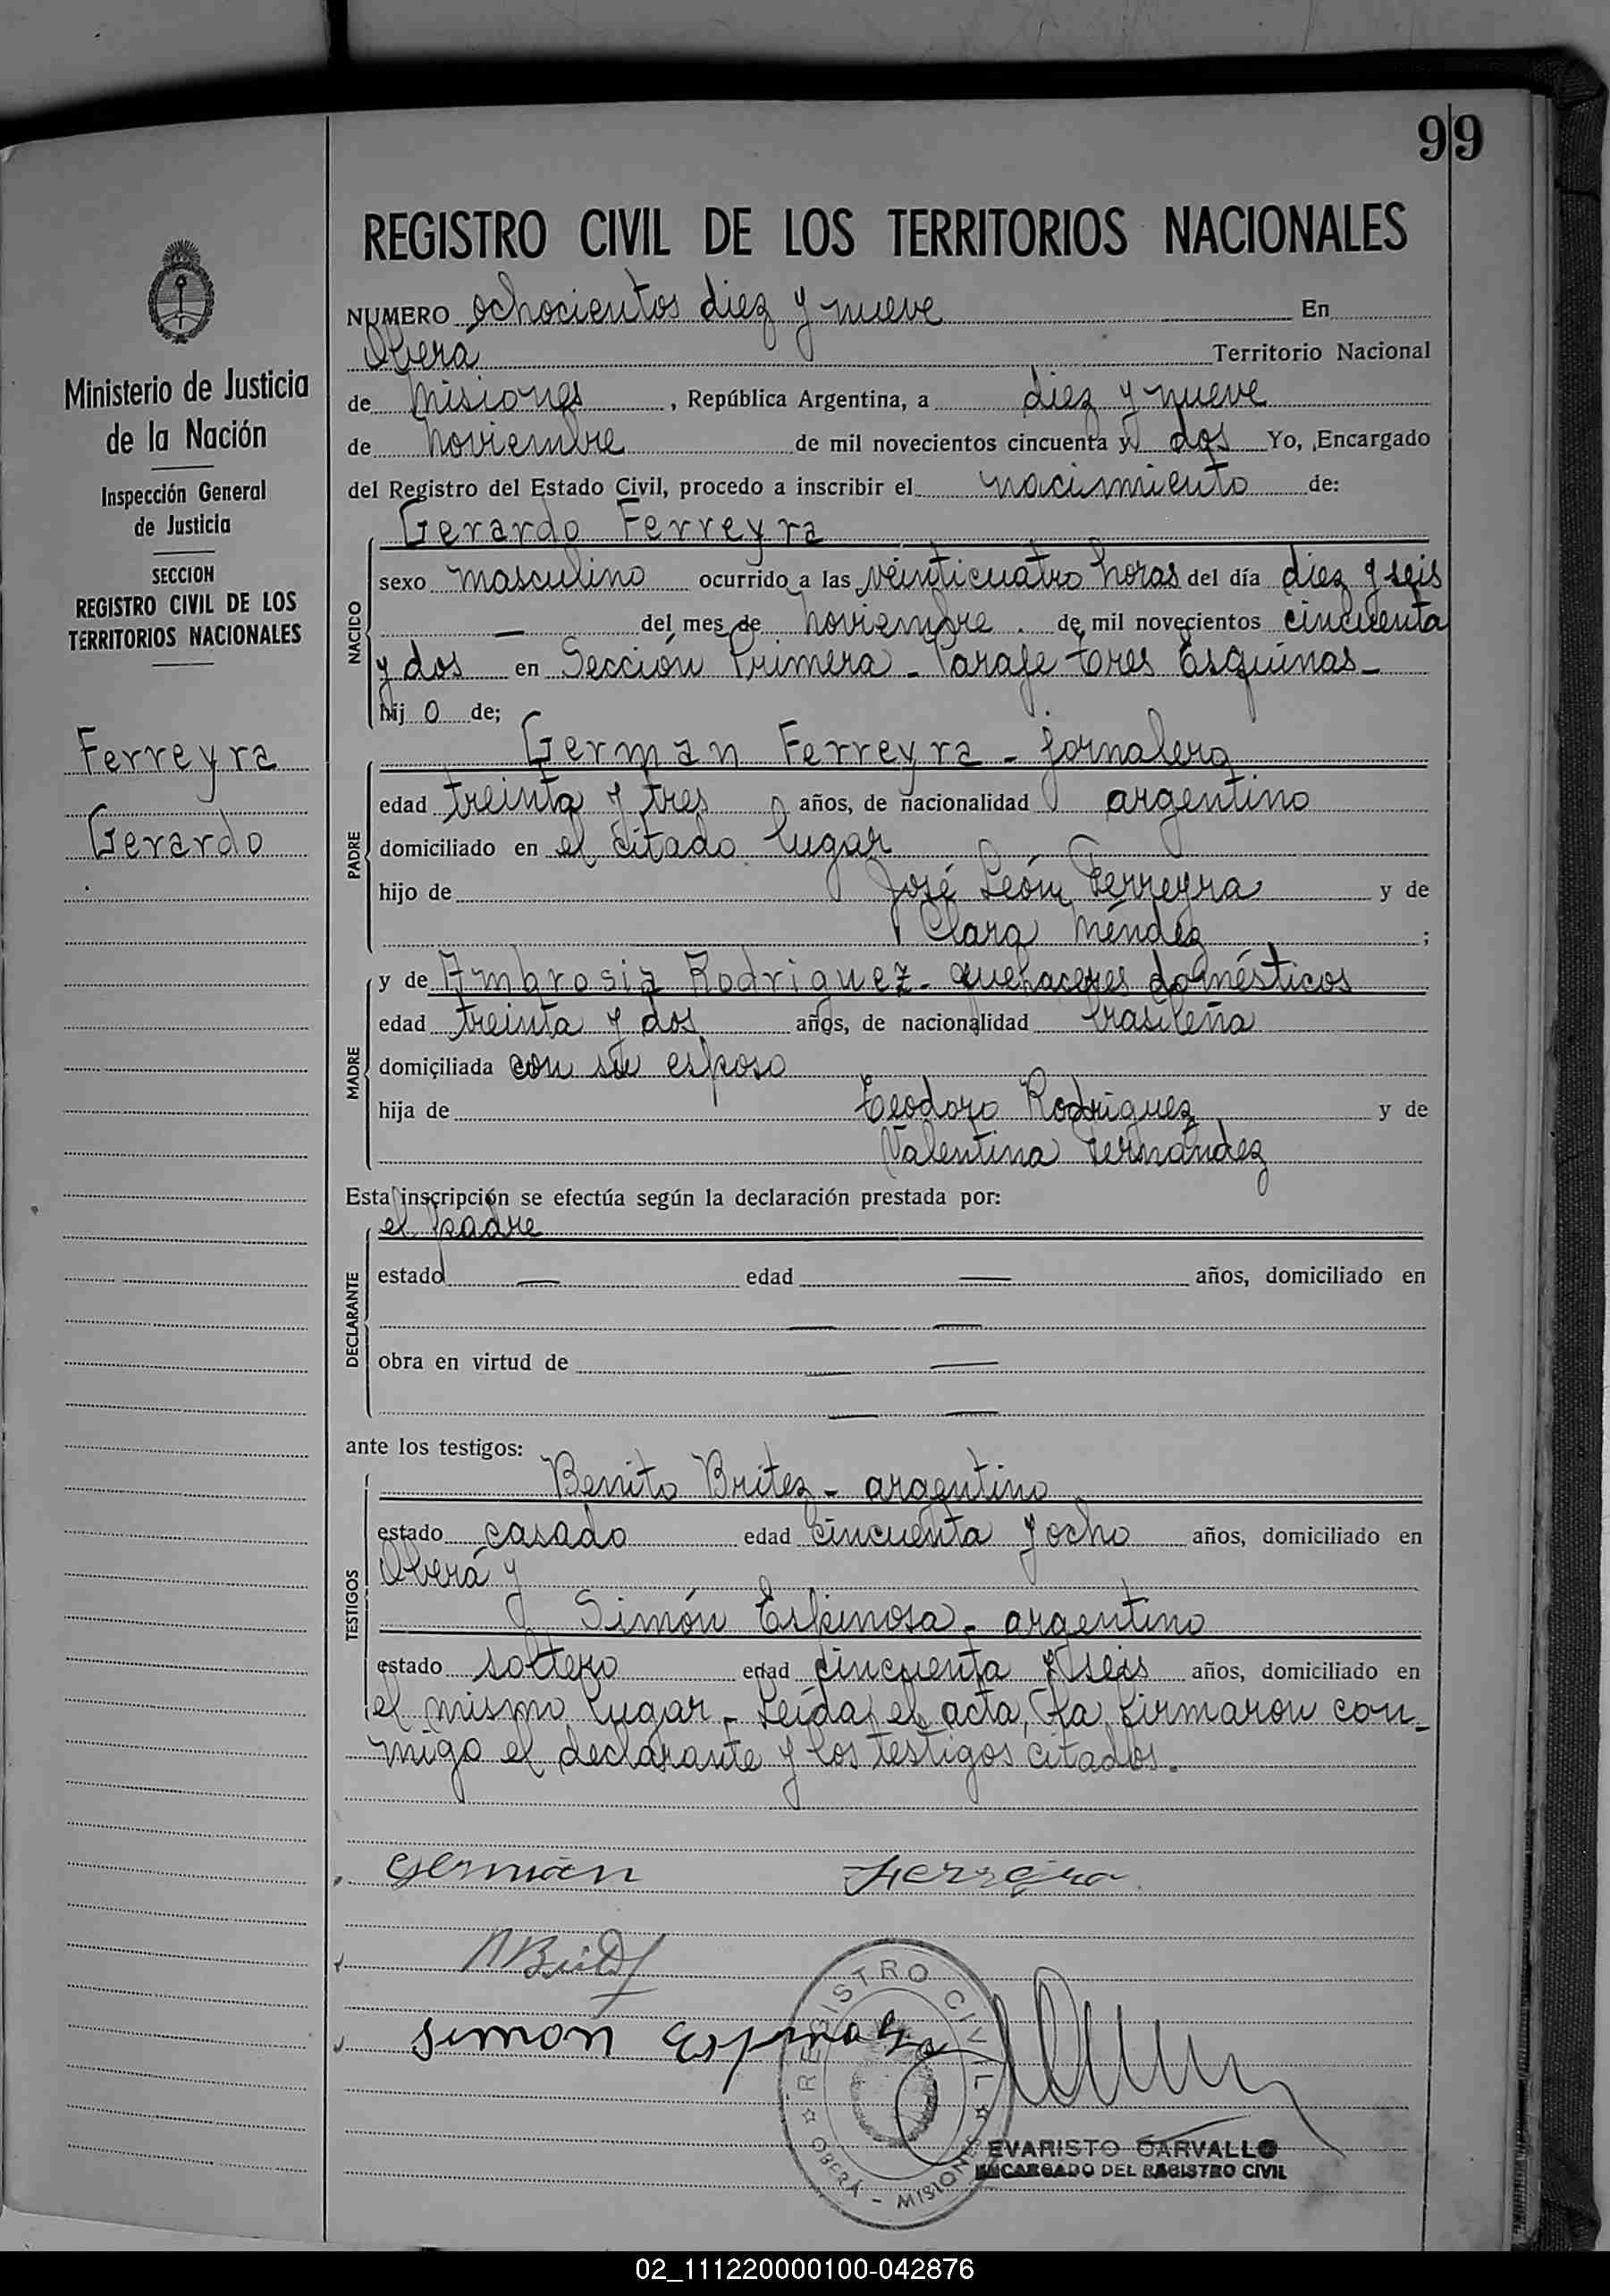 99
REGISTRO CIVIL DE LOS TERRITORIOS NACIONALES
NUMERO ochocientos diez y nueve En
Oberá Territorio Nacional
de Misiones, República Argentina, a diez y nueve
de noviembre de mil novecientos cincuenta y dos Yo, Encargado
del Registro del Estado Civil, procedo a inscribir el nacimiento de:
Gerardo Ferreyra
NACIDO
sexo masculino ocurrido a las veinticuatro horas del día diez y seis
— del mes de noviembre. de mil novecientos cincuenta
y dos en Sección Primera - Paraje tres Esquinas-
hij o de;
German Ferreyra - jornalero
PADRE
edad treinta y tres años, de nacionalidad argentino
domiciliado en el citado lugar
hijo de José León Ferreyra y de
Clara Méndez ;
y de Ambrosia Rodriguez- quehaceres domésticos
MADRE
edad treinta y dos años, de nacionalidad brasileña
domiciliada con su esposo
hija de Teodoro Rodriguez y de
Valentina Fernández
Esta inscripción se efectúa según la declaración prestada por:
el padre
DECLARANTE
estado — edad — años, domiciliado en
— —
obra en virtud de — —
— —
ante los testigos:
Benito Britez - argentino
TESTIGOS
estado casado edad cincuenta y ocho años, domiciliado en
Oberá y
Simón Espinosa - argentino
estado soltero edad cincuenta y seis años, domiciliado en
el mismo lugar - Leída el acta, la firmaron con-
migo el declarante y los testigos citados.
German Ferreira
Simon Espinosa
REGISTRO CIVIL
OBERÁ - MISIONES
EVARISTO CARVALLO
ENCARGADO DEL REGISTRO CIVIL
Ministerio de Justicia
de la Nación
Inspección General
de Justicia
SECCION
REGISTRO CIVIL DE LOS
TERRITORIOS NACIONALES
Ferreyra
Gerardo
02_111220000100-042876